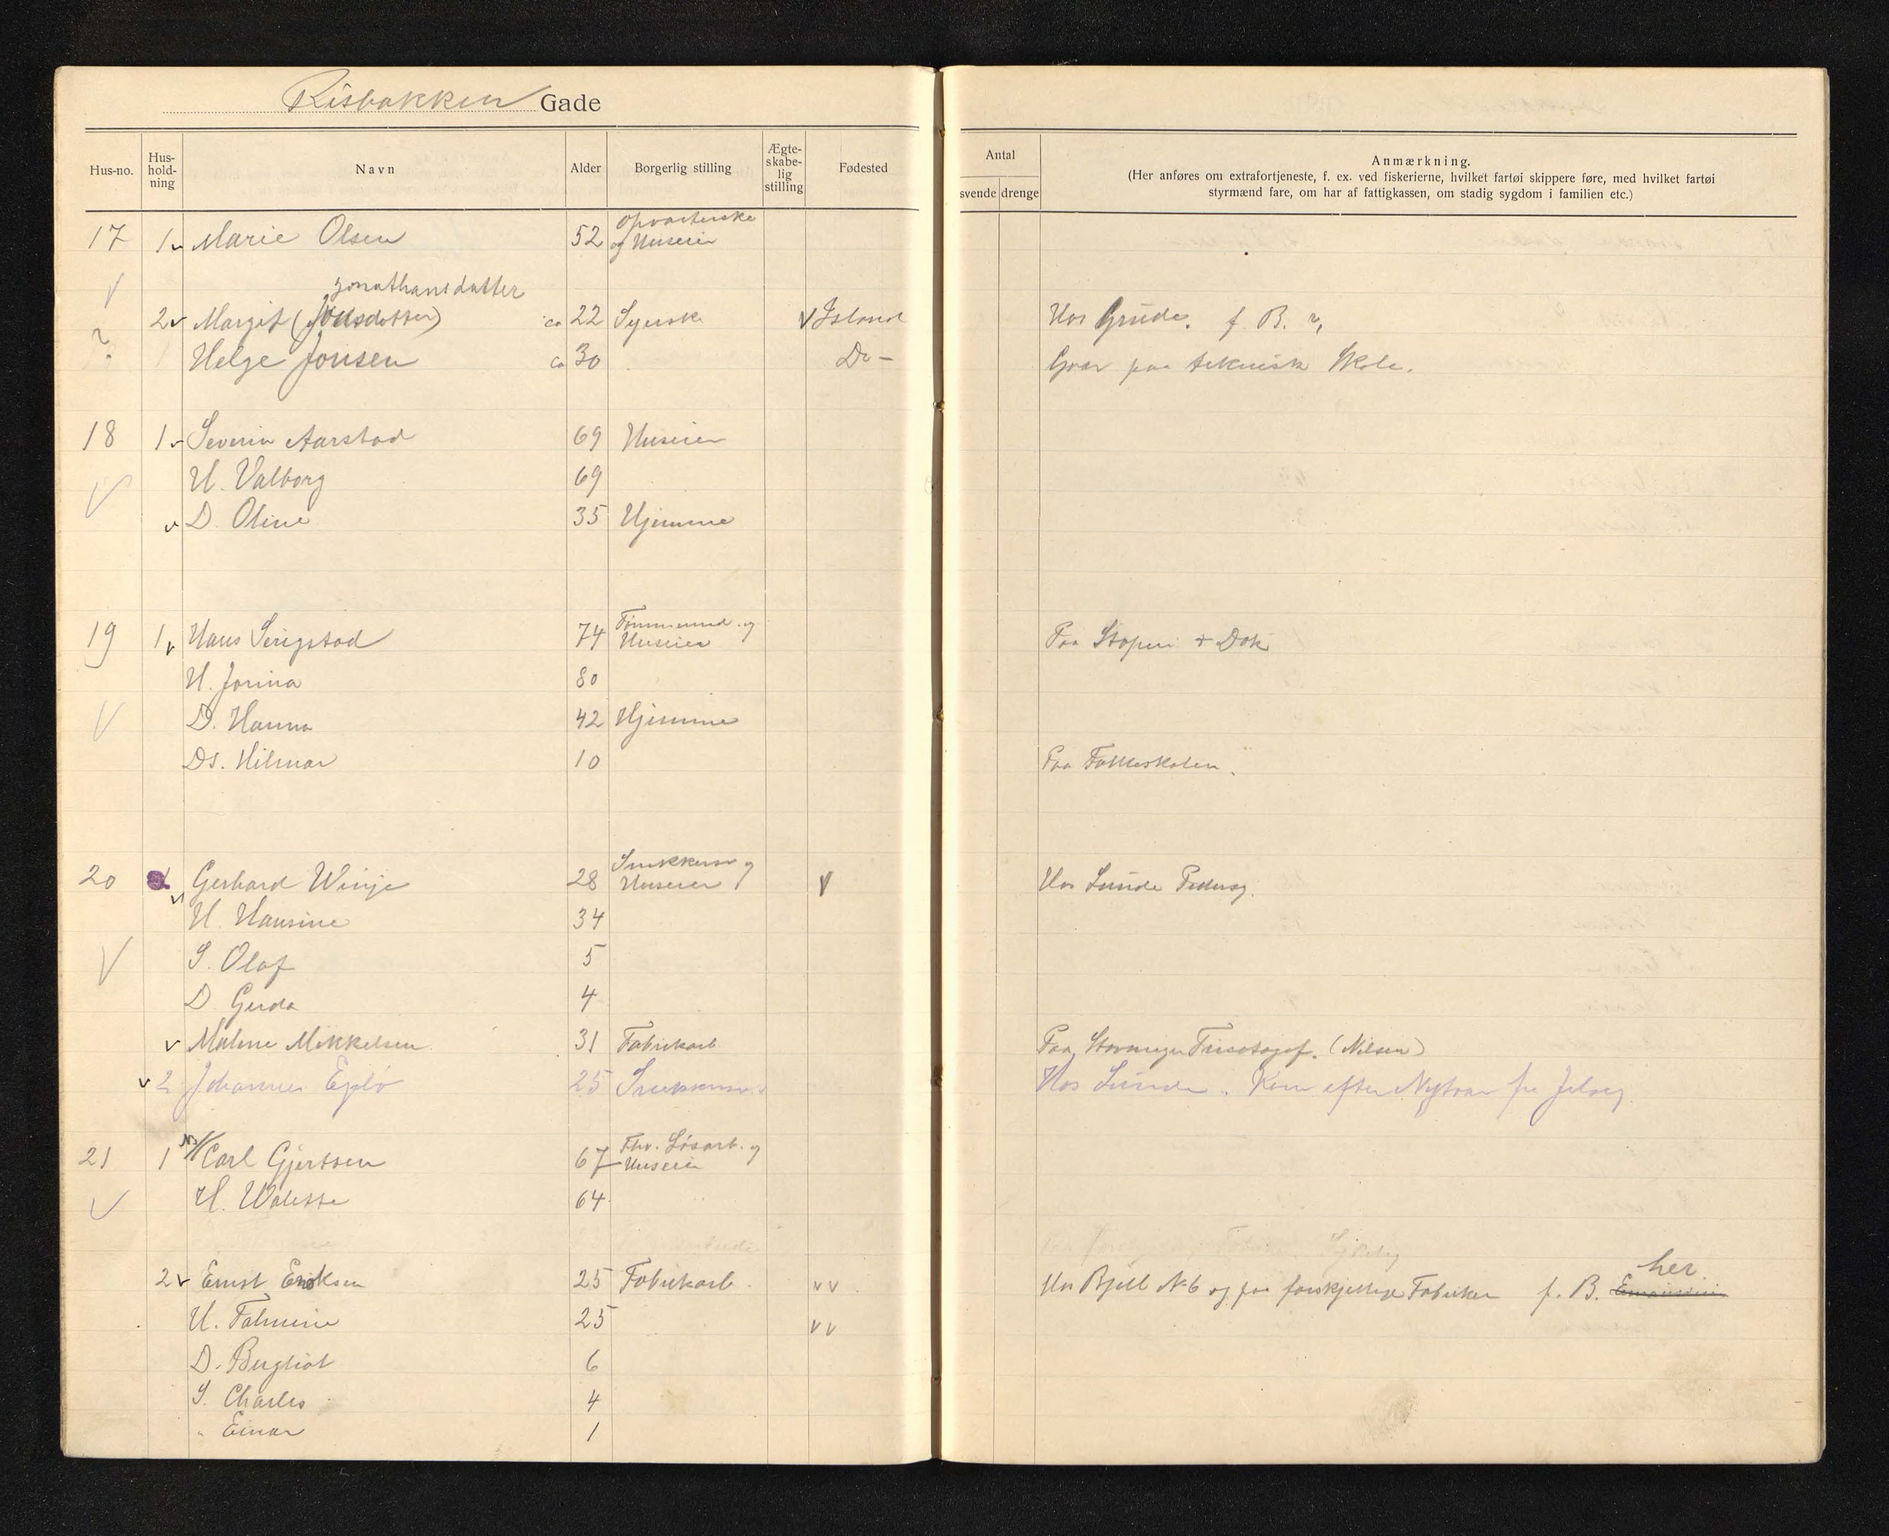 Risbakken Gade
Hus-no. Hus-hold-ning Navn Alder Borgerlig stilling Ægte-skabe-lig stilling Fødested
Antal
svende drenge
Anmærkning.
(Her anføres om extrafortjeneste, f. ex. ved fiskerierne, hvilket fartøi skippere føre, med hvilket fartøi
styrmænd fare, om har af fattigkassen, om stadig sygdom i familien etc.)
17 1 Marie Olsen 52 Opvarterske og Huseier
Jonathansdatter
2 Margit ( ) ca 22 Syerske Island Hos Grude. f. B. ?
? Helge Jonsen ca 30 Do - Gaar paa teknisk Skole.
18 1 Severin Aarstad 69 Huseier
H. Valborg 69
D. Oline 35 Hjemme
19 1 Hans Serigstad 74 Tømmermd. og Huseier Paa Støperi + Dok
H. Jorina 80
D. Hanna 42 Hjemme
Ds. Hilmar 10 Paa Folkeskolen.
20 1 Gerhard Winje 28 Snekkersv og Huseier Hos Lunde Pedersg.
H. Hansine 34
S. Olaf 5
D Gerda 4
Malene Mikkelsen 31 Fabrikarb. Paa Stavanger Tricotagef. (Nilsen)
2 Johannes 25 Snekkersv. Hos Lunde. Kom efter Nytaar fra Jelsø
21 1 Carl Gjertsen 67 Fhv. Løsarb. og Huseier
H. 64
2 Ernst Eriksen 25 Fabrikarb. Hos Bjelland No 6 og paa forskjellige Fabriker f. B. her
H. 25
D. Bergliot 6
S. Charles 4
" Einar 1